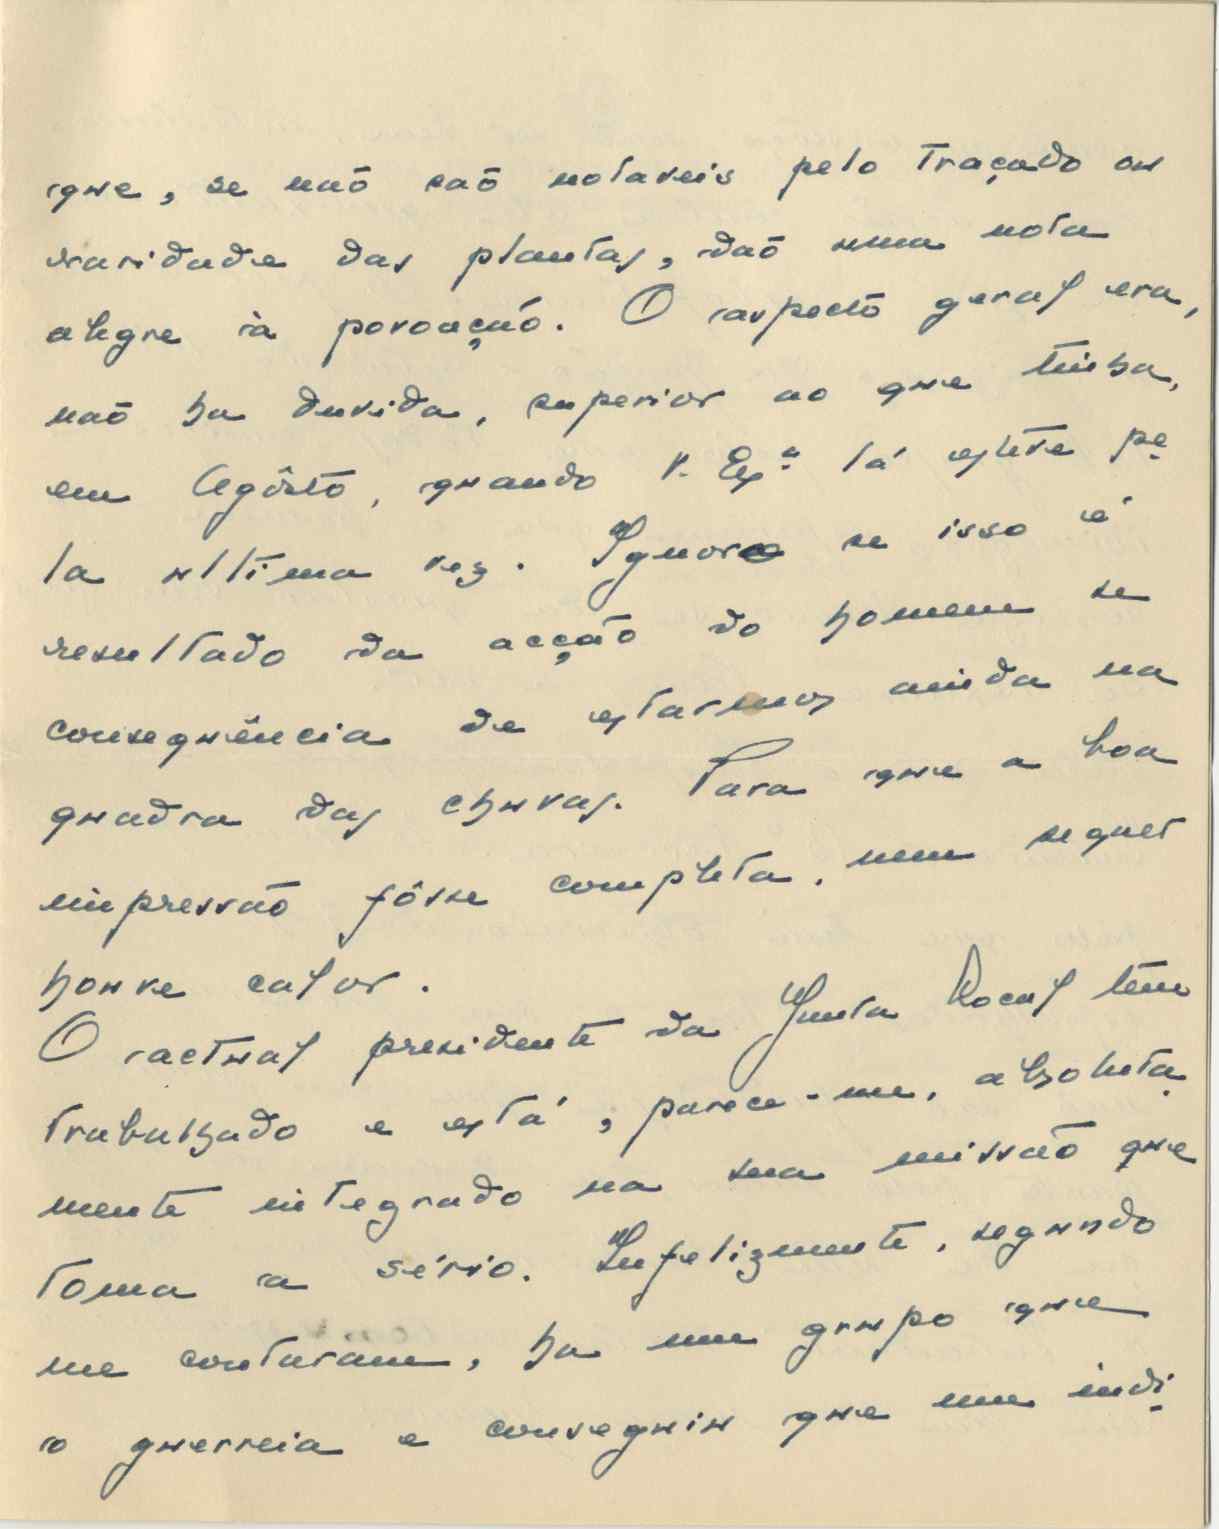 que, se não são notaveis pelo traçado ou
raridade das plantas, dão uma nota
alegre à povoação. O aspecto geral era,
não ha duvida, superior ao que tinha,
em Agôsto, quando V. Exª lá esteve pe
la ultima vez. Ignoro se isso é
resultado da acção do homem se
consequência de estarmos ainda na
quadra das chuvas. Para que a boa
impressão fôsse completa, nem sequer
houve calor.
O actual presidente da Junta Local tem
trabalhado e está, parece-me, absoluta
mente integrado na sua missão que
toma a sério. Infelizmente, segundo
me contaram, ha um grupo que
o guerreia e conseguiu que um indi